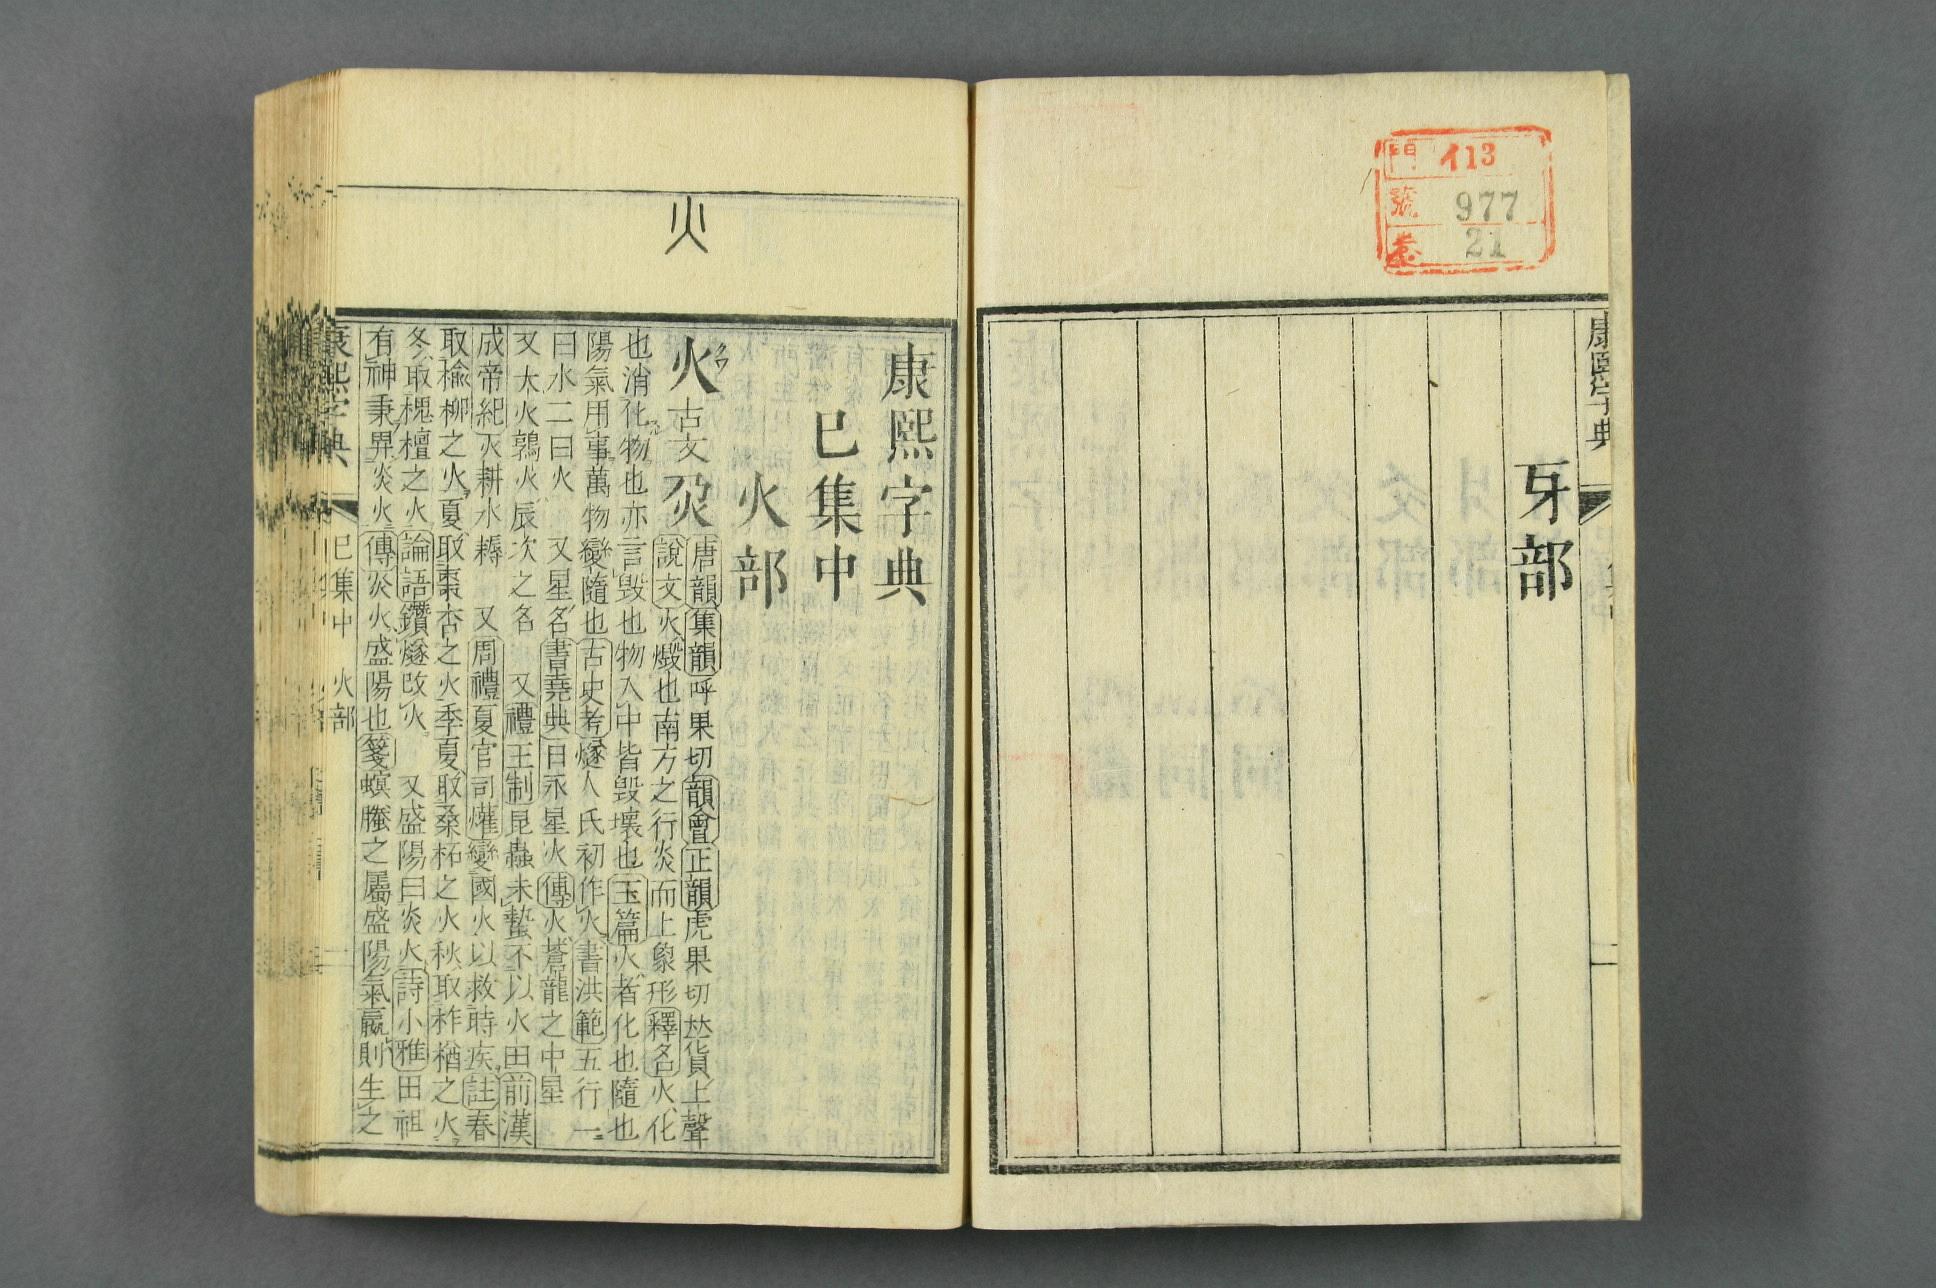 門 イ13
號 977
卷 21
康熙字典
牙部
二
火
康熙字典
巳集中
火部
火古文㶣
唐韻集韻呼果切韻會正韻虎果切𠀤貨上聲
說文火燬也南方之行炎而上象形釋名火化
也消化物也亦言毀也物入中皆毀壞也玉篇火者化也隨也
陽氣用事萬物變隨也古史考燧人氏初作火書洪範五行一
曰水二曰火 又星名書堯典日永星火傳火蒼龍之中星
又大火鶉火辰次之名 又禮王制昆蟲未蟄不以火田前漢
成帝紀火耕水耨 又周禮夏官司爟變國火以救時疾註春
取楡柳之火夏取棗杏之火季夏取桑柘之火秋取柞楢之火
冬取槐檀之火論語鑽燧改火 又盛陽曰炎火詩小雅田祖
有神秉畀炎火傳炎火盛陽也箋螟螣之屬盛陽氣嬴則生之
康熙字典 巳集中 火部